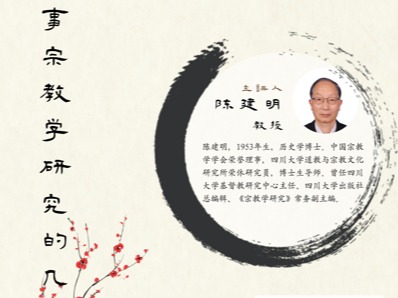 事宗教学研究的几
主讲人
陈建明
教授
陈建明，1953年生，历史学博士，中国宗教
学学会荣誉理事，四川大学道教与宗教文化
研究所荣休研究员、博士生导师，曾任四川
大学基督教研究中心主任、四川大学出版社
总编辑、《宗教学研究》常务副主编。